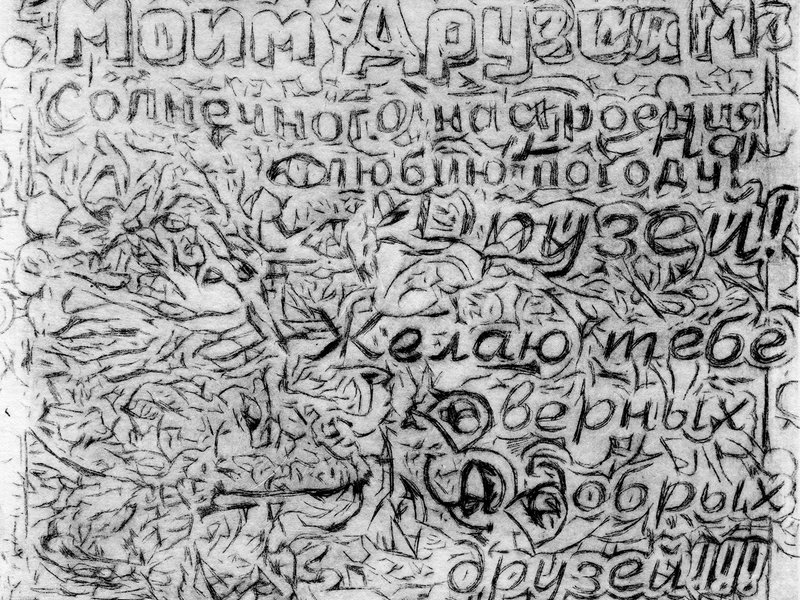 Моим Друзьям
Солнечного настроения
На
люблю погоду!
Друзей!
Желаю тебе
верных
Добрых
друзей!!!